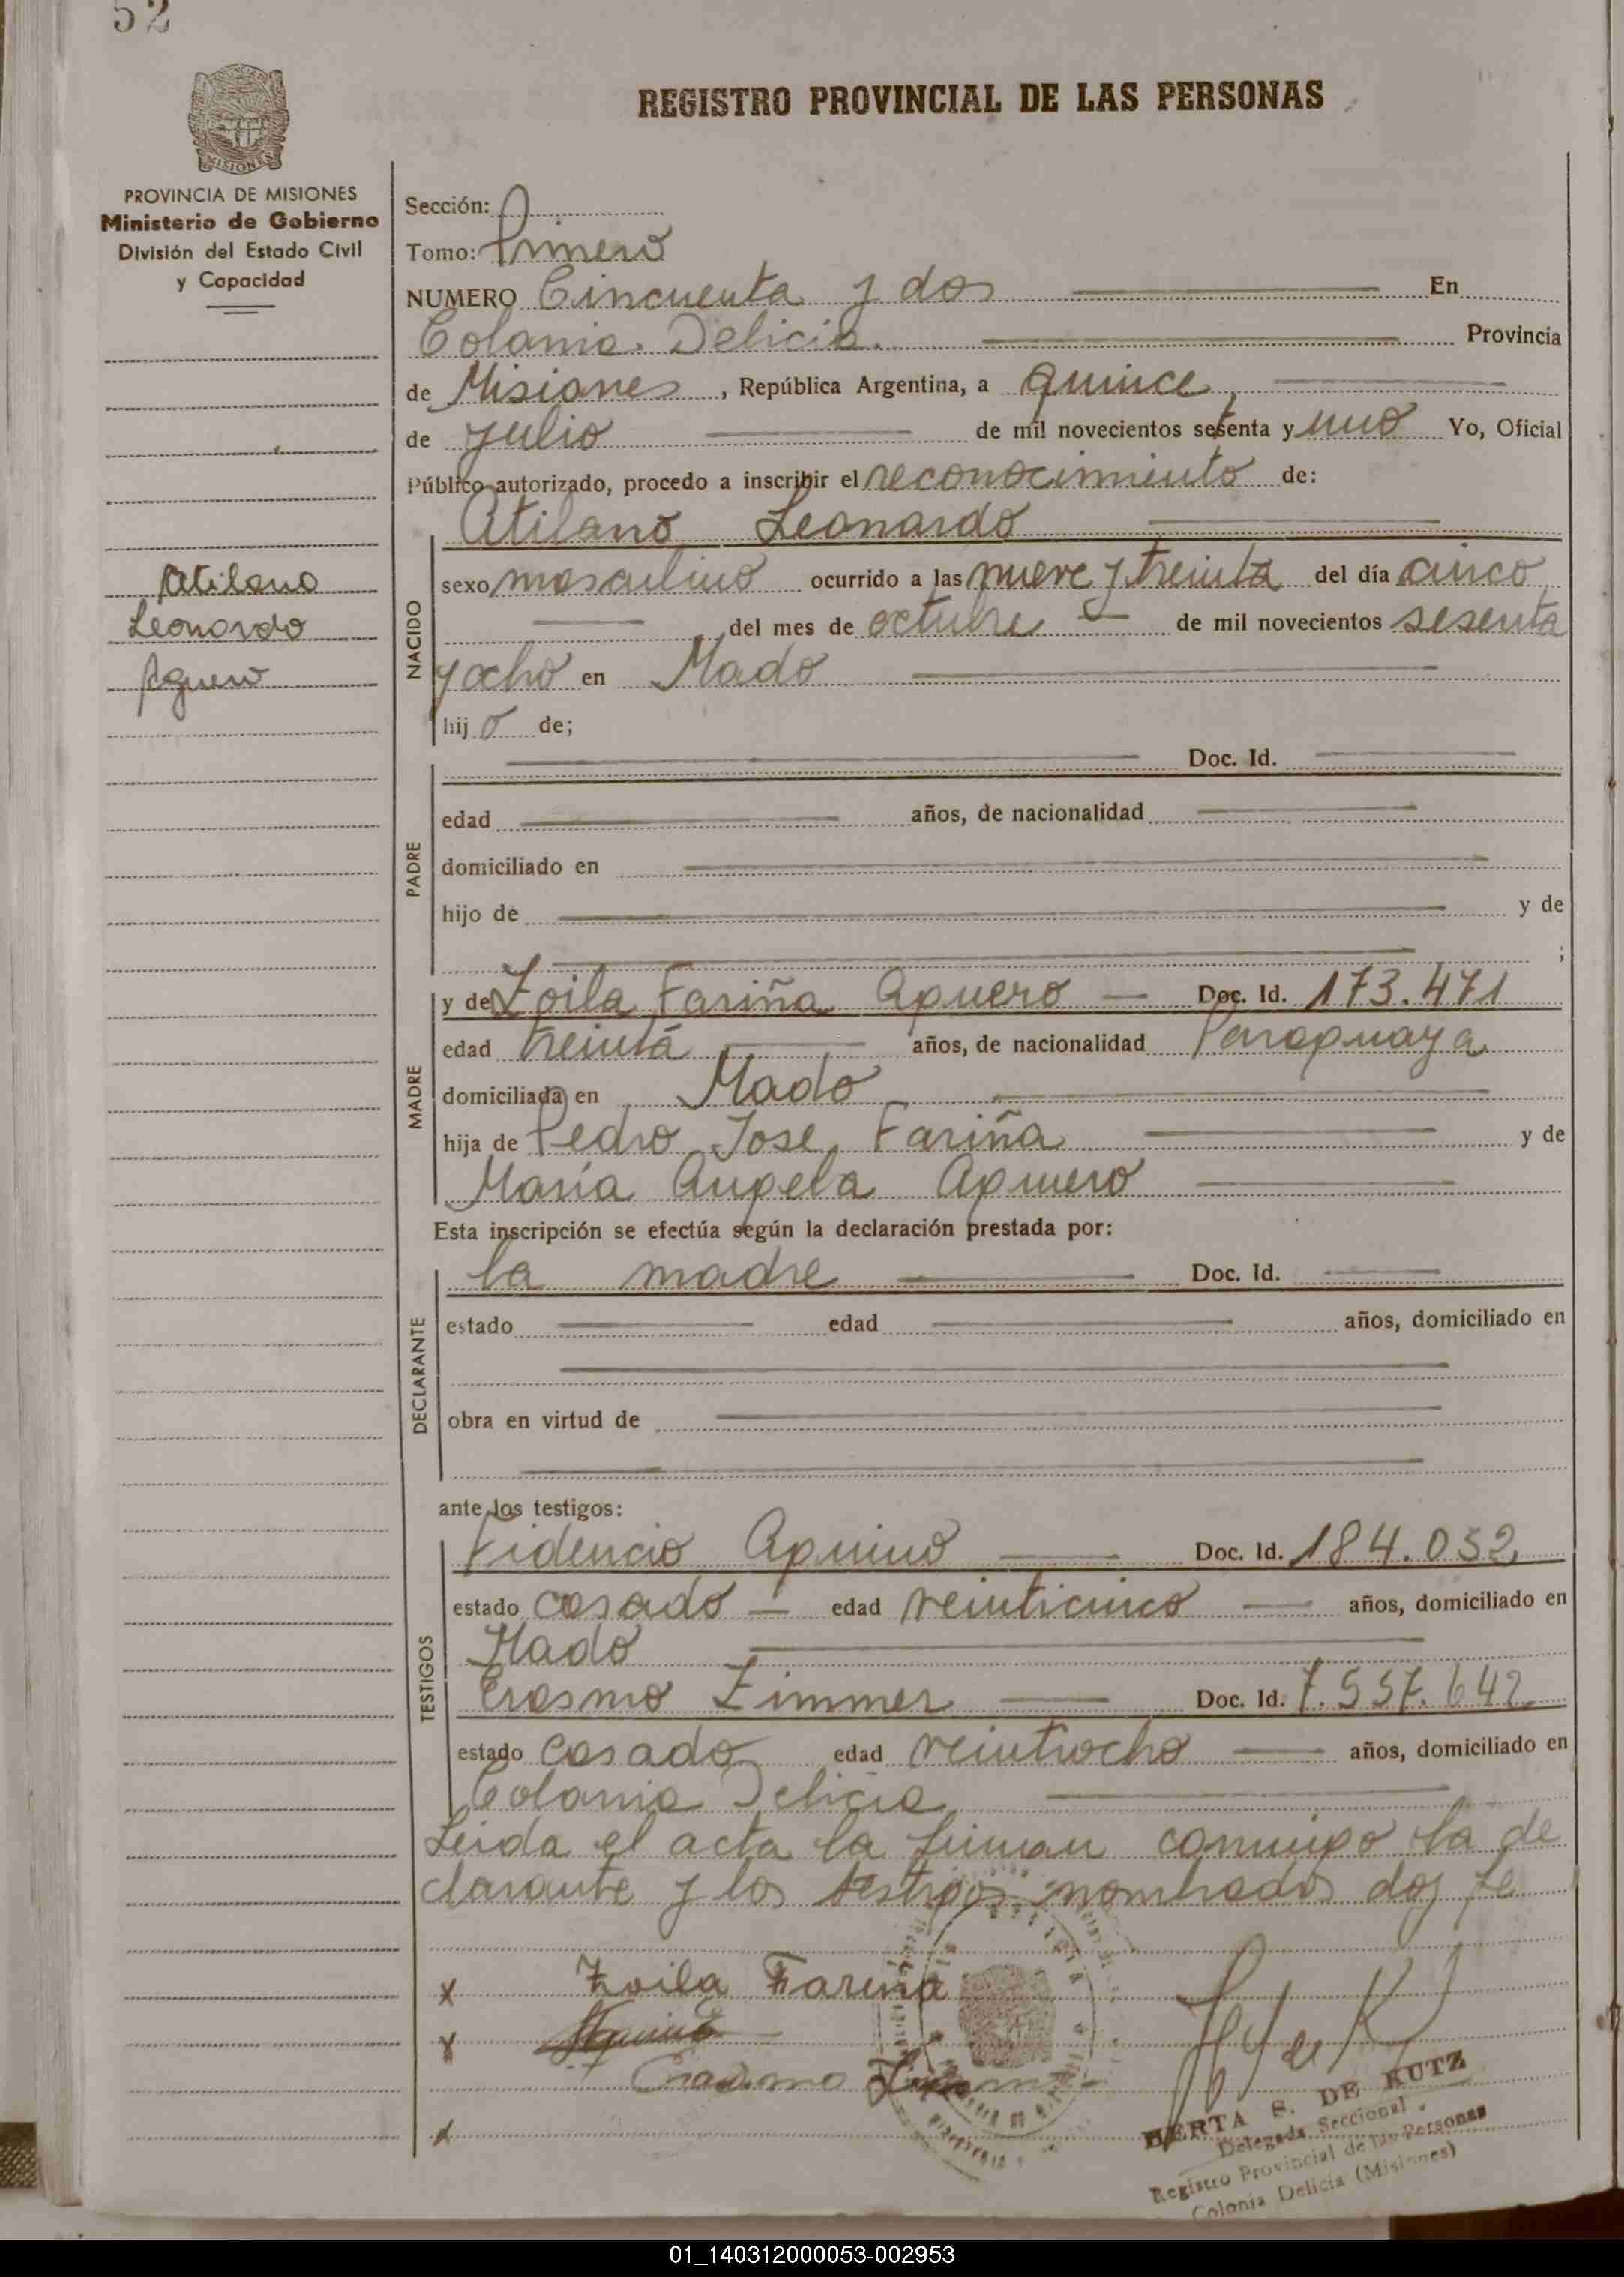 52
MISIONES
PROVINCIA DE MISIONES
Ministerio de Gobierno
División del Estado Civil
y Capacidad
REGISTRO PROVINCIAL DE LAS PERSONAS
Sección:
Tomo: Primero
NUMERO Cincuenta y dos En
Colonia Delicia. Provincia
de Misiones, República Argentina, a quince,
de julio de mil novecientos setenta y uno Yo, Oficial
Público autorizado, procedo a inscribir el reconocimiento de:
Atilano Leonardo
Atilano
Leonardo
Aguero
NACIDO
sexo masculino ocurrido a las nueve y treinta del día cinco
del mes de octubre de mil novecientos sesenta
y ocho en Mado
hijo de;
Doc. Id.
PADRE
edad años, de nacionalidad
domiciliado en
hijo de y de
;
MADRE
y de Zoila Fariña Aguero Doc. Id. 173.471
edad treinta años, de nacionalidad Paraguaya
domiciliada en Mado
hija de Pedro Jose Fariña y de
María Angela Aguero
Esta inscripción se efectúa según la declaración prestada por:
DECLARANTE
la madre Doc. Id.
estado edad años, domiciliado en
obra en virtud de
ante los testigos:
TESTIGOS
Fidencio Aquino Doc. Id. 184.032
estado casado edad veinticinco años, domiciliado en
Mado
Erasmo Zimmer Doc. Id. 7.557.642
estado casado edad veintiocho años, domiciliado en
Colonia Delicia
Leida el acta la firman conmigo la de
clarante y los testigos nombrados doy fe
x Zoila Fariña
x Aquino
Erasmo
x
HERTA S. DE KUTZ
Delegada Seccional
Registro Provincial de las Personas
Colonia Delicia (Misiones)
01_140312000053-002953